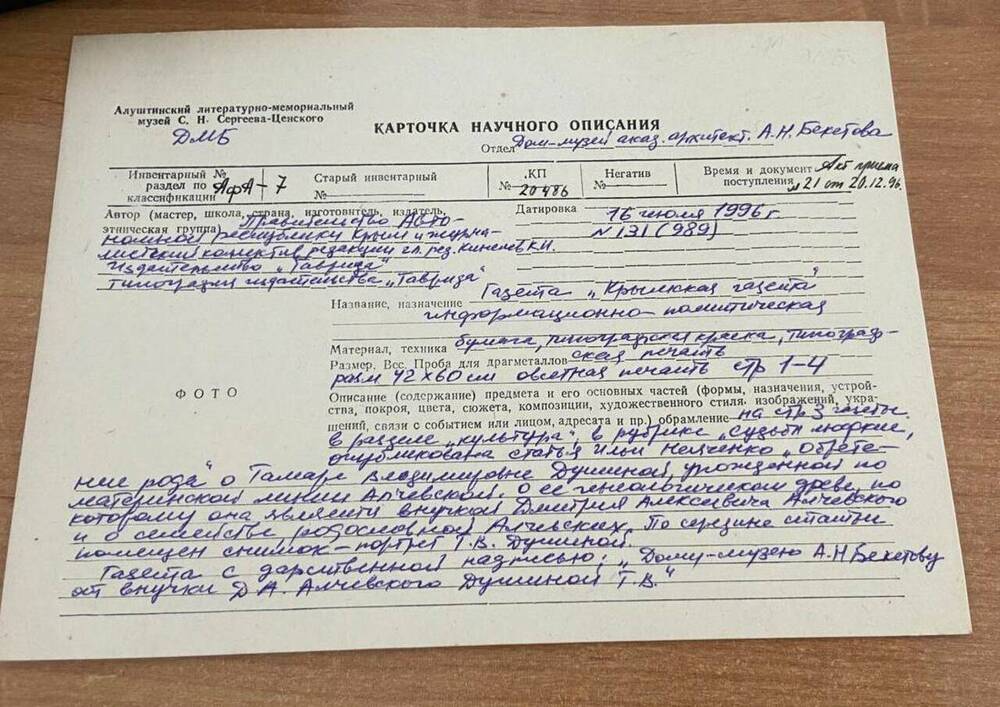 Алуштинский литературно-мемориальный
музей С. Н. Сергеева-Ценского
ДМБ
КАРТОЧКА НАУЧНОГО ОПИСАНИЯ
Отдел Дом-музей акад. архитект. А.Н. Бекетова
Инвентарный №
раздел по
классификации АфА-7
Старый инвентарный
№
КП
№ 20486
Негатив
№
Время и документ Акт приема
поступления №21 от 20.12.96.
Автор (мастер, школа, страна, изготовитель, издатель,
этническая группа) Правительство Авто-
номной республики Крым и журна-
листский коллектив редакции гл. ред.
Издательство „Таврида"
типография издательства „Таврида"
Датировка 16 июля 1996 г
N 131 (989)
Название, назначение Газета „Крымская газета"
информационно-политическая
Материал, техника бумага, типографская краска, типограф-
Размер. Вес. Проба для драгметаллов ская печать
разм 42х60 см офсетная печать стр 1-4
ФОТО
Описание (содержание) предмета и его основных частей (формы, назначения, устрой-
ства, покроя, цвета, сюжета, композиции, художественного стиля, изображений, укра-
шений, связи с событием или лицом, адресата и пр.) обрамление на стр 3 газеты
в разделе „культура", в рубрике „судьбы людские,
опубликована статья Ильи „Обрете-
ние рода" о Тамаре Владимировне Душиной, урожденной по
материнской линии Алчевской, о ее генеологическом древе, по
которому она является внучкой Дмитрия Алексеевича Алчевского
и о семействе родословной Алчевских. По середине статьи
помещен снимок-портрет Т.В. Душиной.
Газета с дарственной надписью: „Дому-музею А.Н Бекетову
от внучки Д А. Алчевского Душиной Т.В."